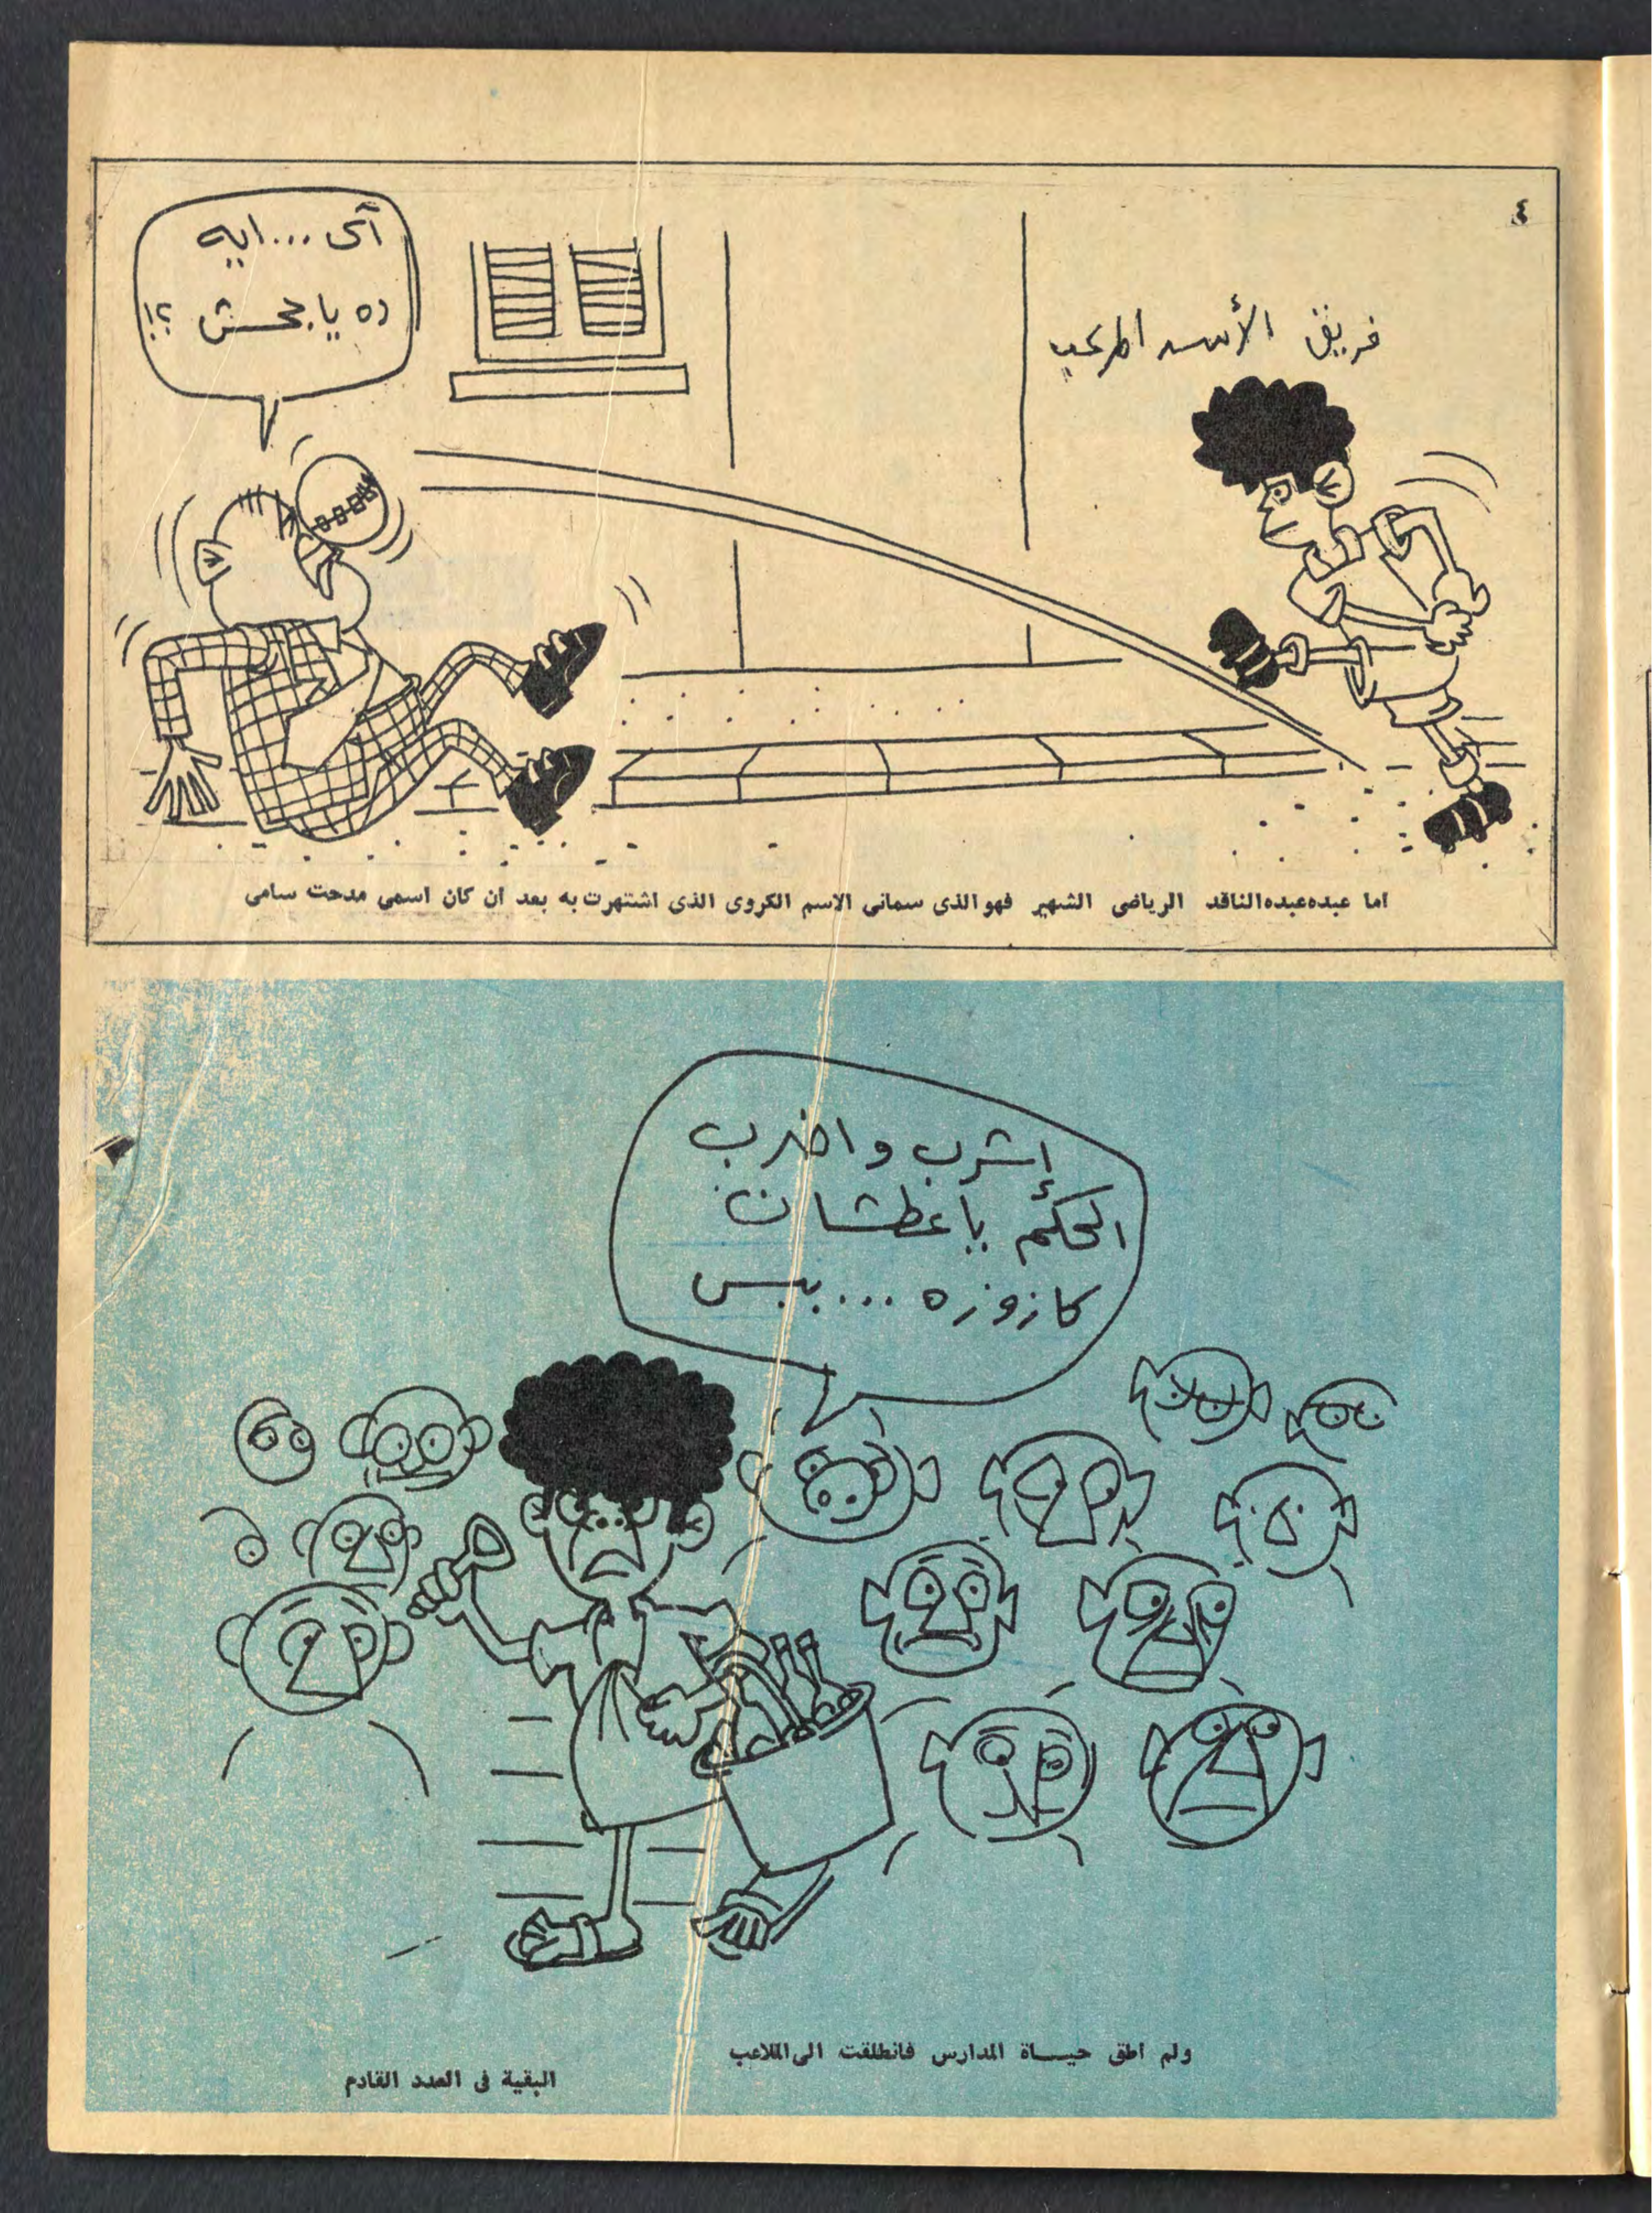 ٤
فريق الأسد المرعب
آى ... ايه
ده يا جحش ؟!
اما عبده عبده الناقد الرياضى الشهير فهو الذى سمانى الاسم الكروى الذى اشتهرت به بعد ان كان اسمى مدحت سامى
إشرب واضرب
الحكم يا عطشان
كازوزه ... بيبس
ولم اطق حيــاة المدارس فانطلقت الى الملاعب
البقية فى العدد القادم